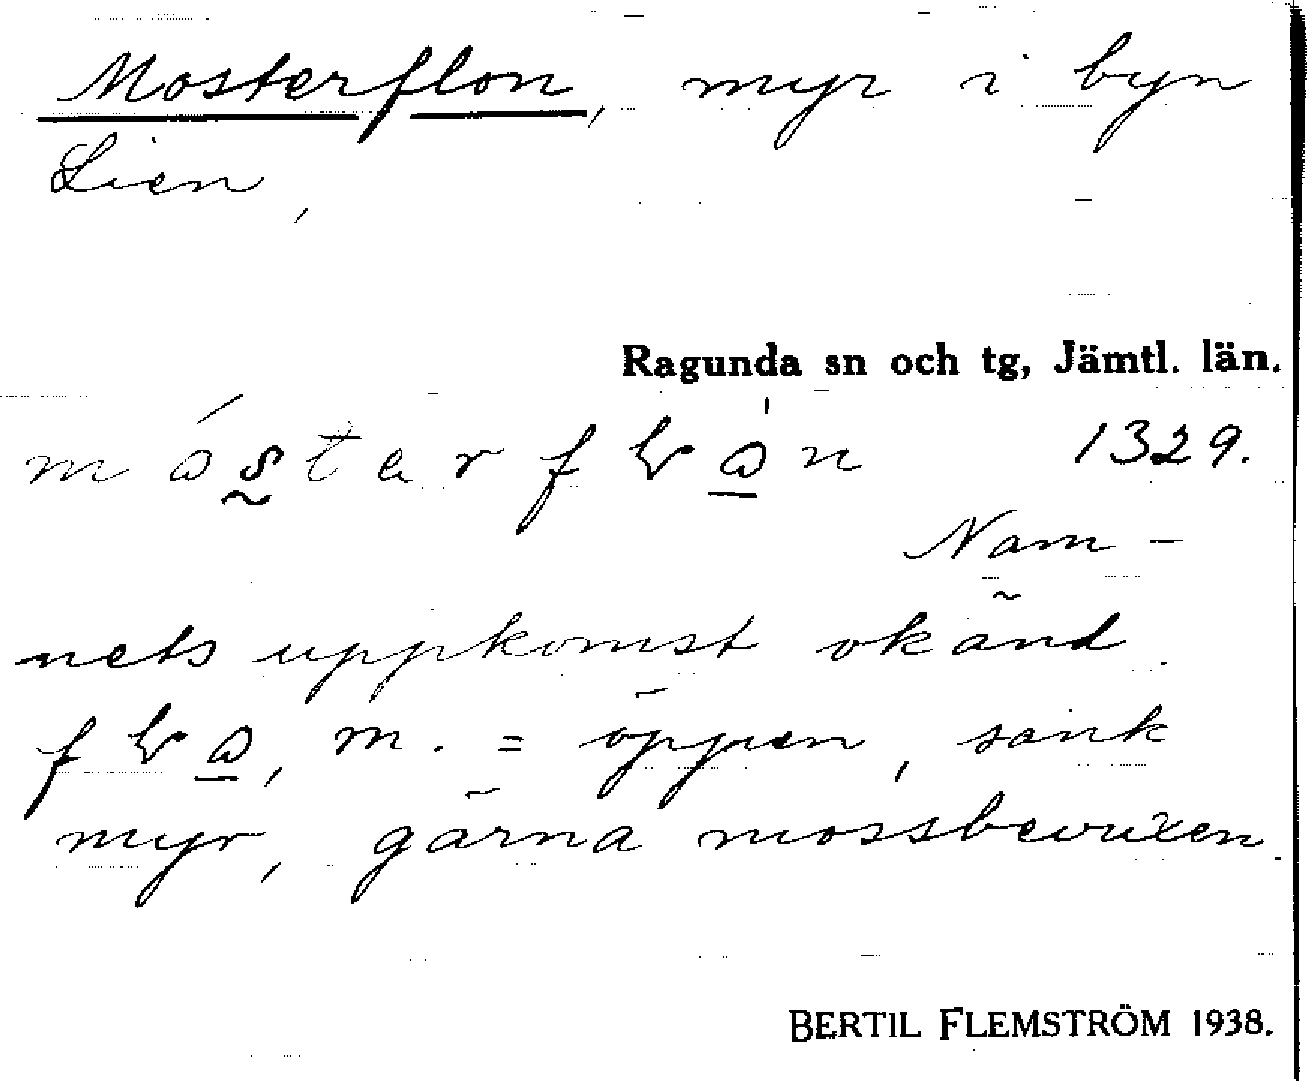 Mosterflon, myr i byn
Lien,
Ragunda sn och tg, Jämtl. län.
1329.
Nam-
nets uppkomst okänd.
m. = öppen, sank
myr, gärna mossbevuxen.
BERTIL FLEMSTRÖM 1938.